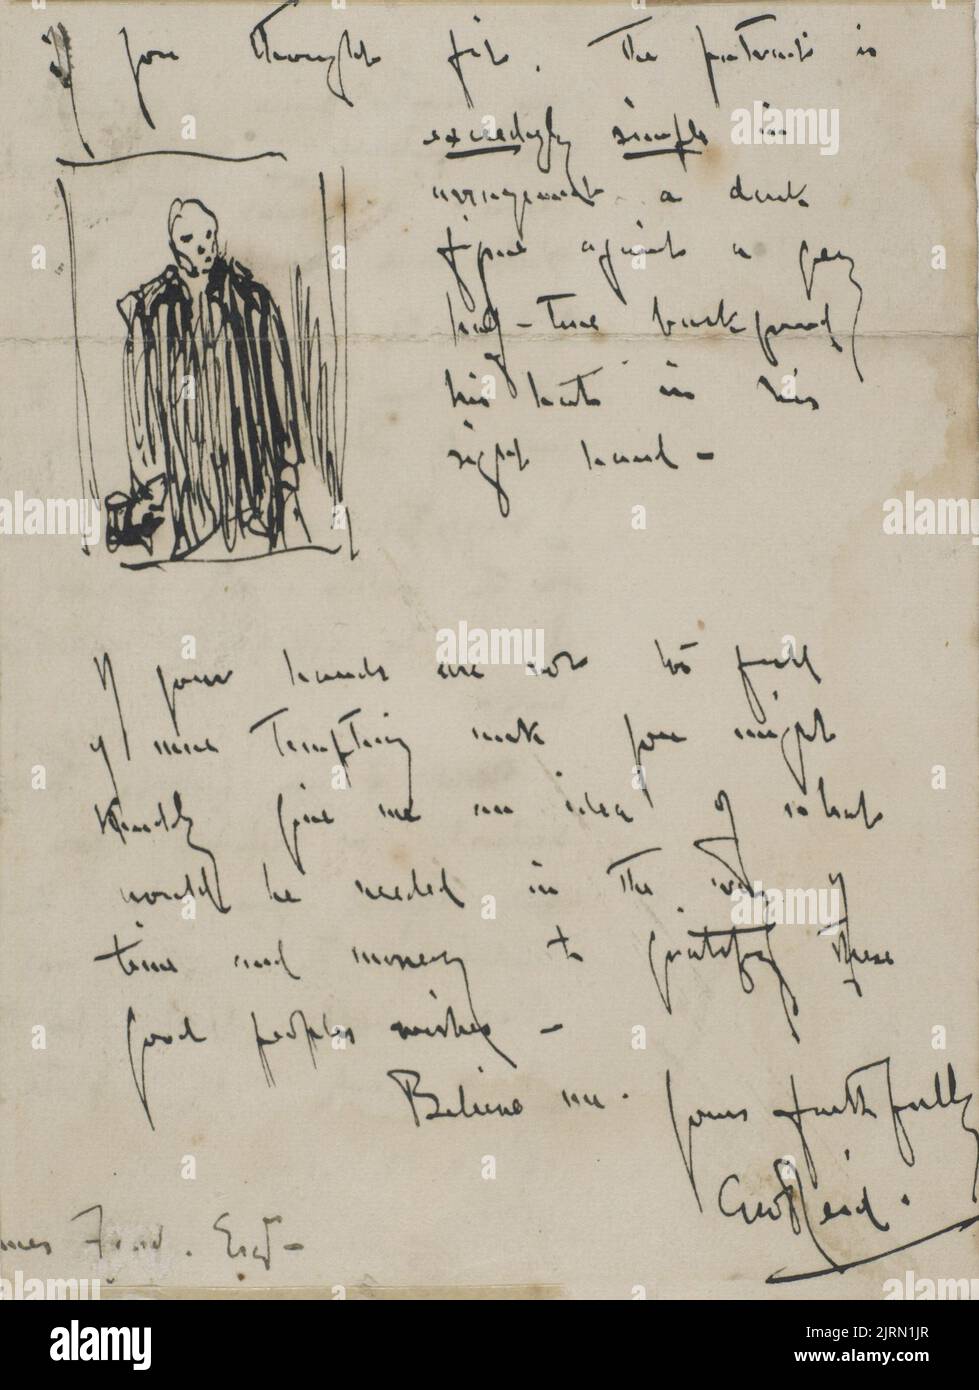 if you thought fit. The portrait is
exceedingly simple in
arrangement a dark
figure against a grey
half-tone background,
his hat in his
right hand -
If your hands are not too full
of more tempting work you might
kindly give me an idea of what
would be needed in the way of
time and money to gratify these
good peoples wishes -
Believe me. yours faithfully
Geo Reid.
Esqr -
alamy
Image ID: 2JRN1JR
www.alamy.com